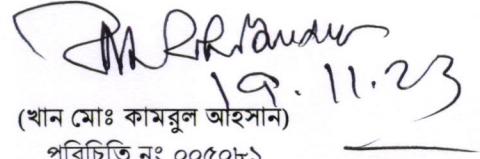 19.11.23
(খান মোঃ কামরুল আহসান)
পরিচিতি নং ০০৫০৮১